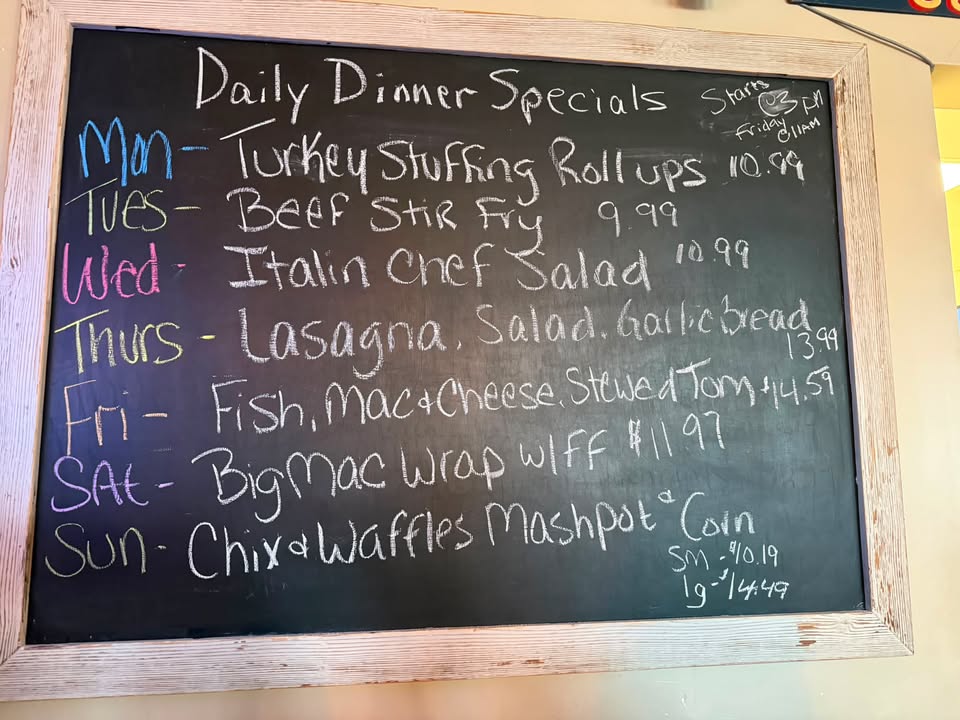 Daily Dinner Specials
Starts @3pm
Friday @11AM
Mon - Turkey Stuffing Roll ups 10.99
Tues - Beef Stir Fry 9.99
Wed - Italin Chef Salad 10.99
Thurs - Lasagna, Salad, Garlic bread
13.99
Fri - Fish, Mac & Cheese, Stewed Tom $14.59
SAt - Big Mac Wrap w/FF $11.97
Sun - Chix & Waffles Mashpot & Corn
SM - $10.19
lg - $14.49